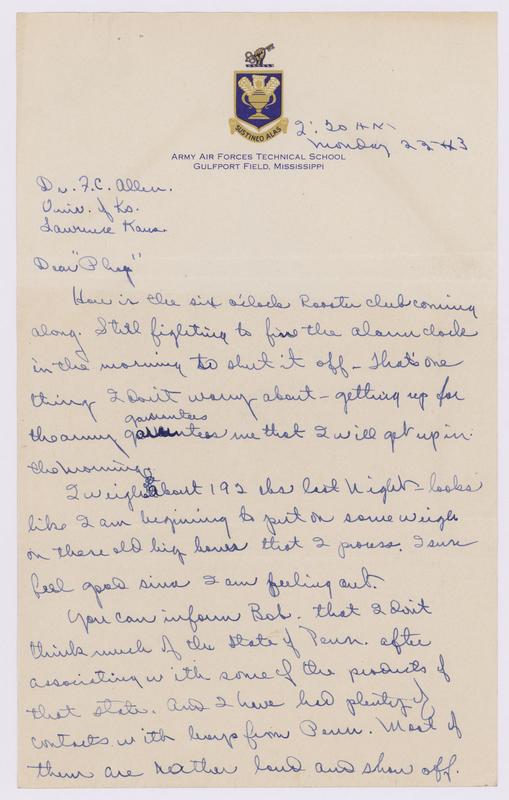 SUSTINEO ALAS
2:20 A.M.
Monday 22-43
ARMY AIR FORCES TECHNICAL SCHOOL
GULFPORT FIELD, MISSISSIPPI
Dr. F.C. Allen.
Univ. of Ks.
Lawrence Kans.
Dear "Phog"
How is the six o'clock Rooster club coming
along. Still fighting to fine the alarm clock
in the morning to shut it off - That's one
thing I don't worry about - getting up for
garuntees
the army me that I will get up in
the morning.
I weighed about 192 lbs last Night - looks
like I am begining to put on some weigh
on these old big bones that I process. I sure
feel good since I am feeling out.
You can inform Bob. that I don't
think much of the State of Penn. after
associating with some of the products of
that state. And I have had plenty of
contacts with boys from Penn. Most of
them are rather loud and show off.